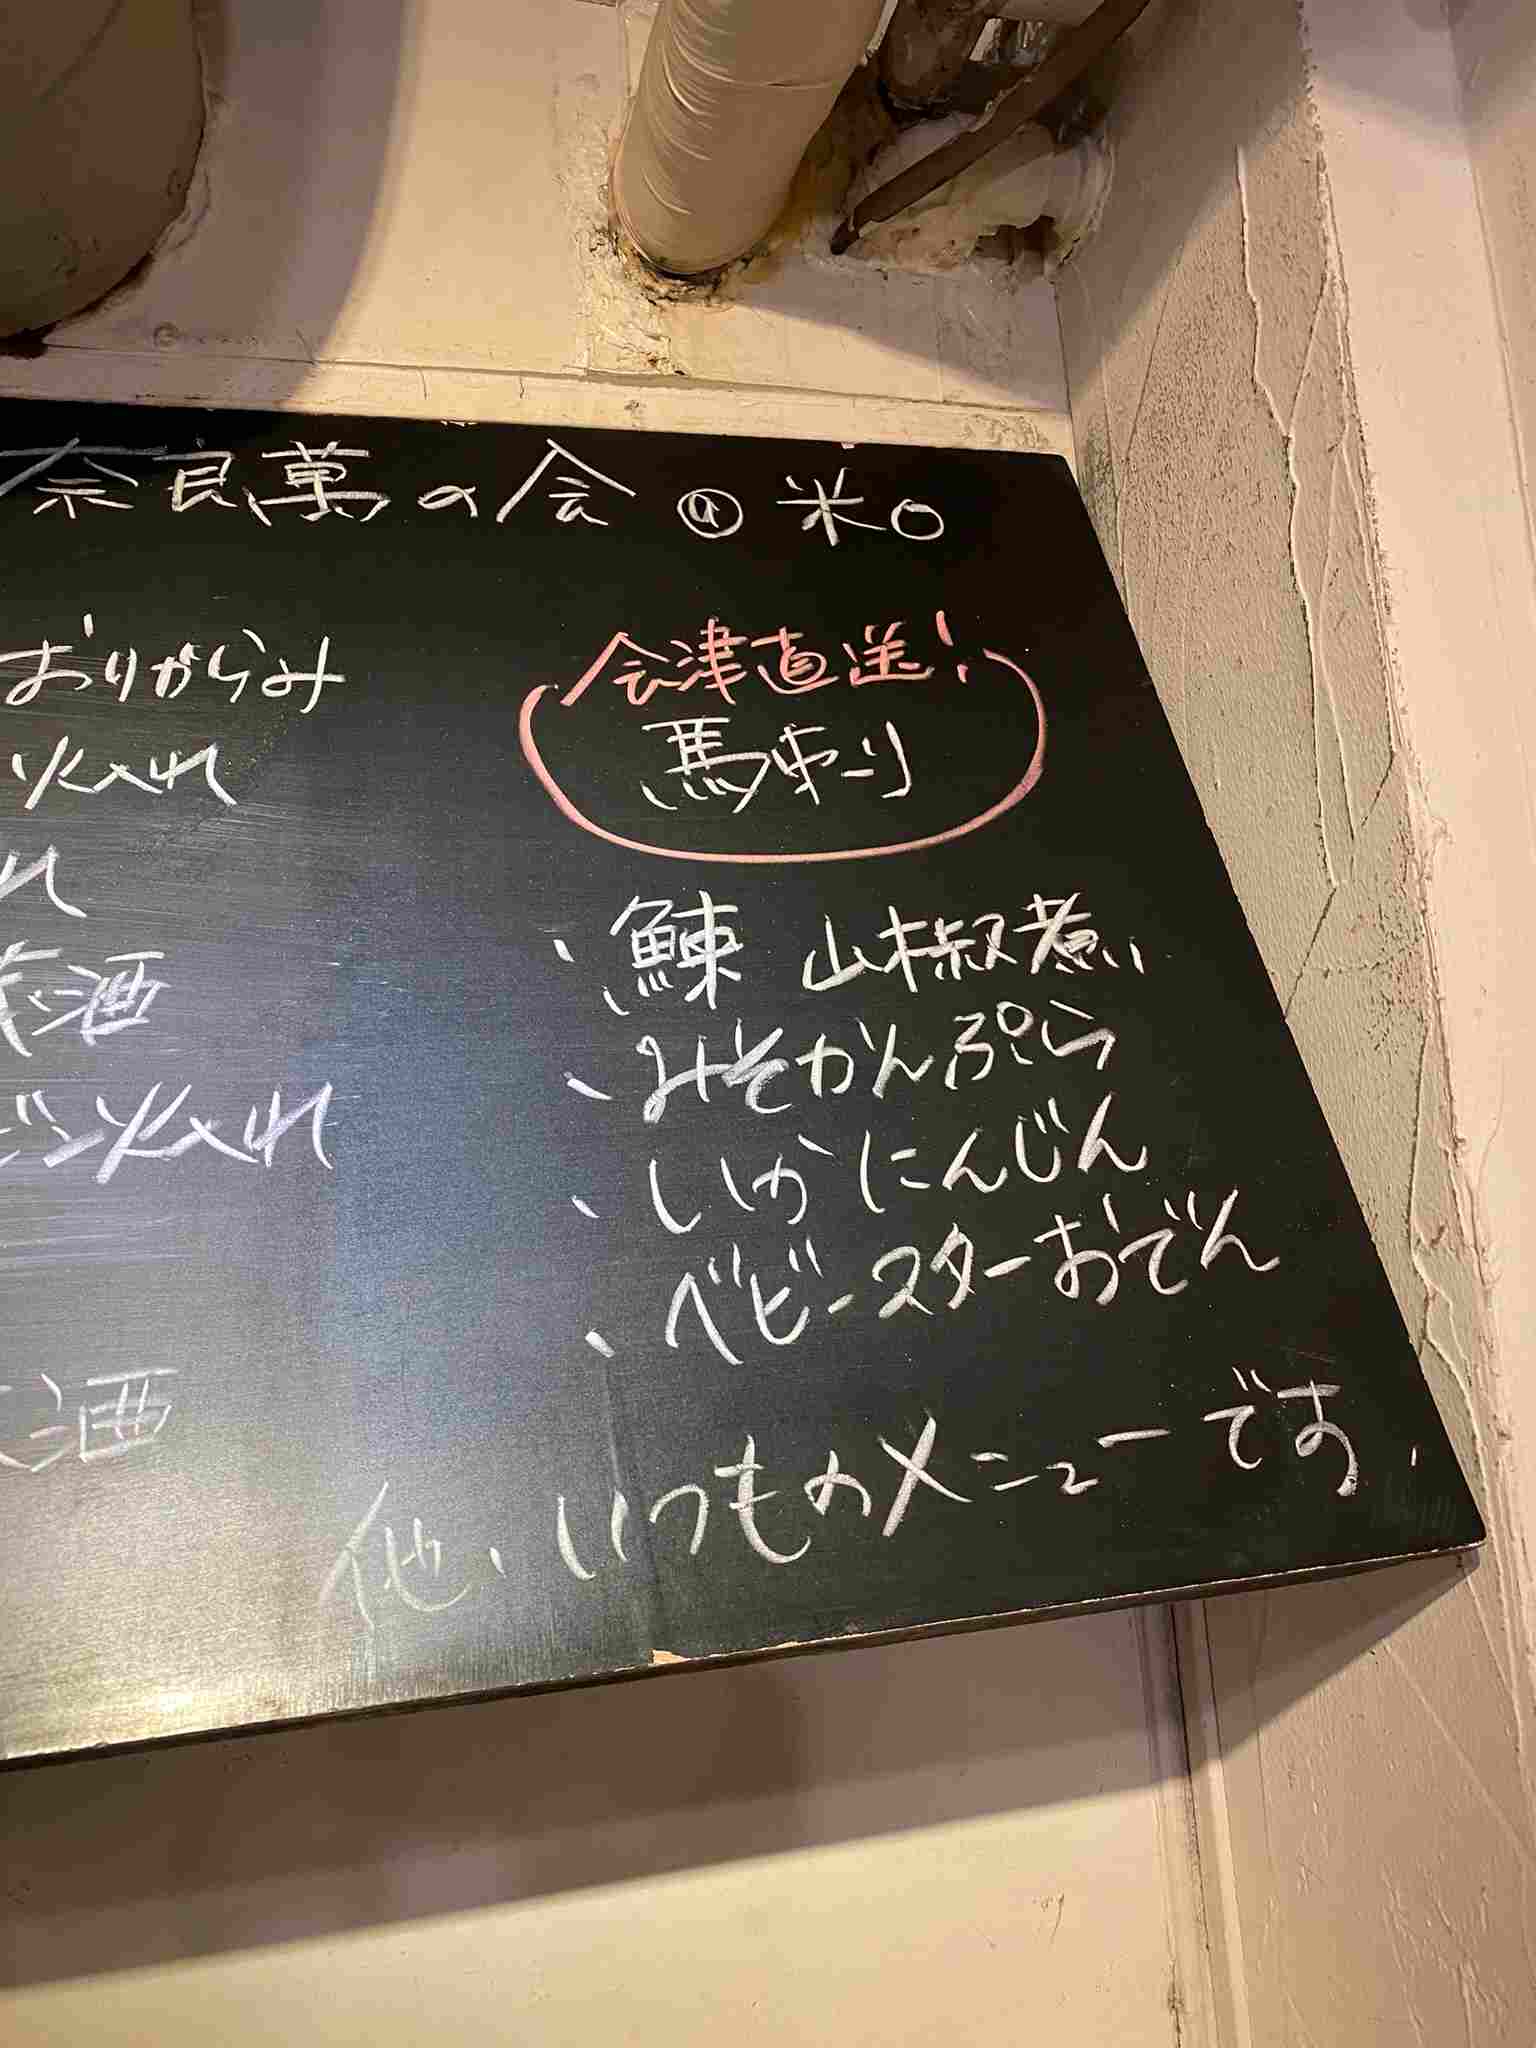 奈良萬の会 @ 米○
おりがらみ
火入れ
れ
酒
ビン火入れ
酒
会津直送!
馬刺し
、鰊 山椒煮
、みそかんぷら
、いかにんじん
、ベビースターおでん
他、いつものメニューです.